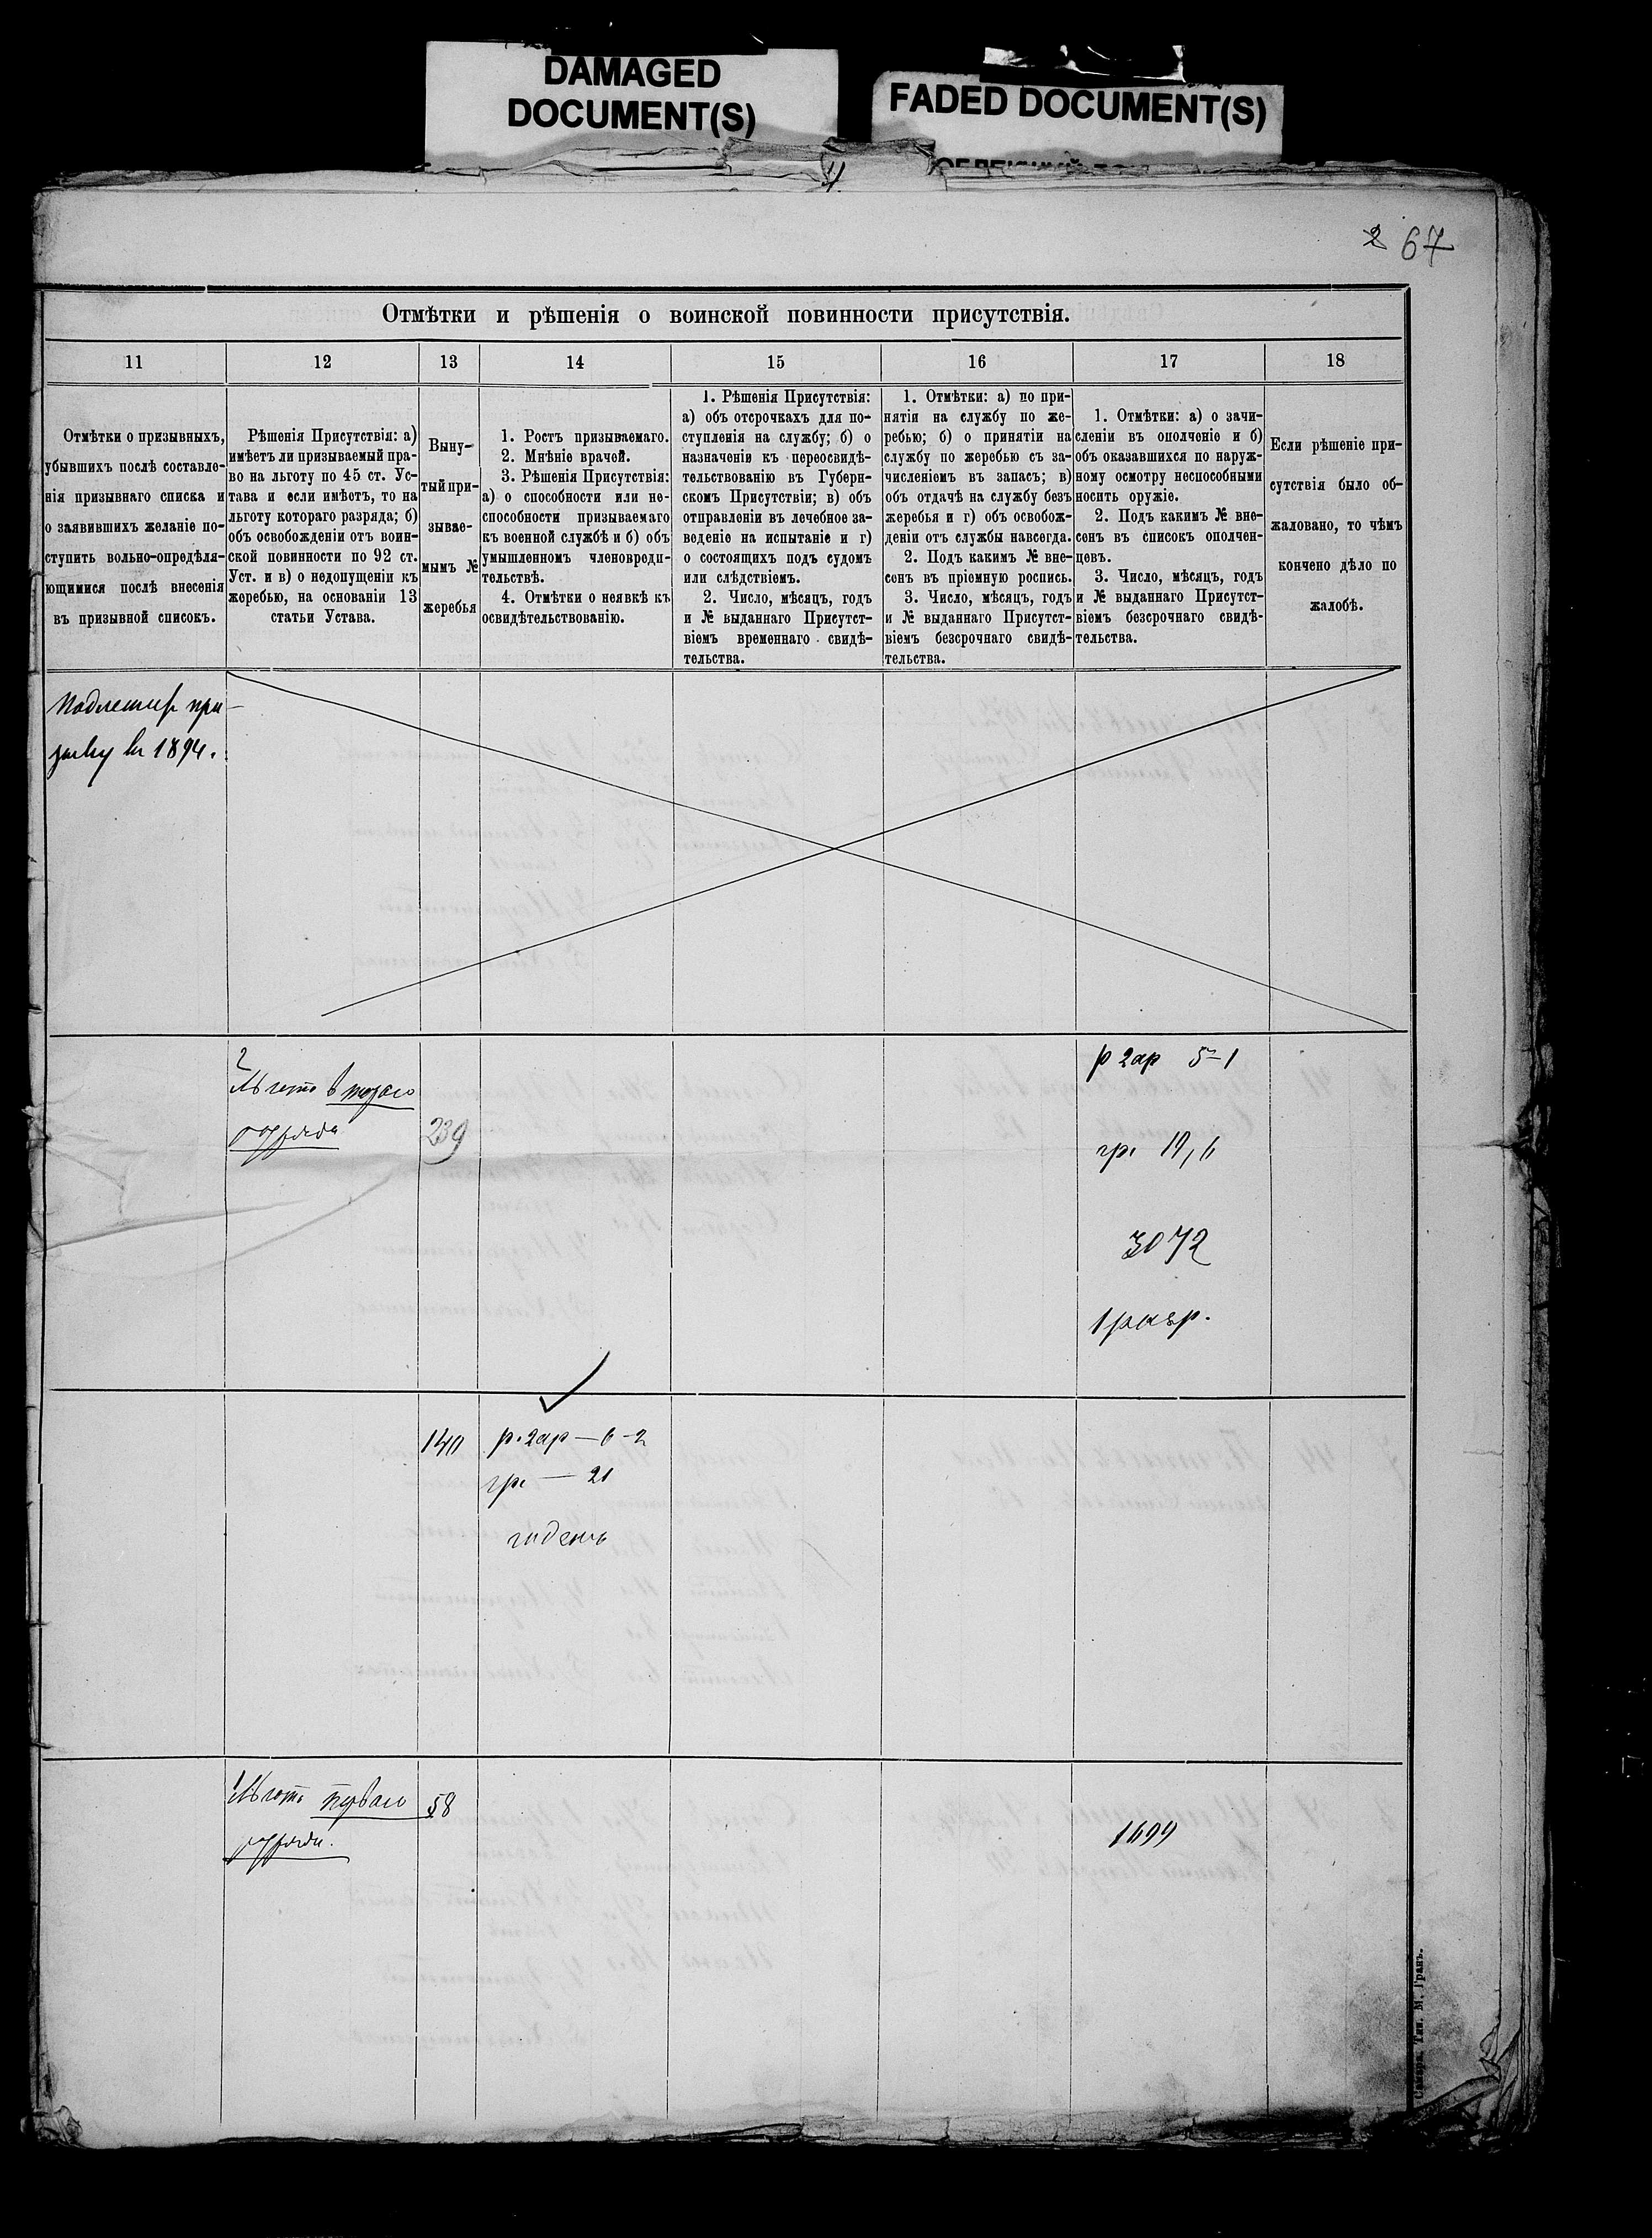 DAMAGED
DOCUMENT(S)
FADED DOCUMENT(S)
2 67
Отмѣтки и рѣшенія о воинской повинности присутствія.
11 12 13 14 15 16 17 18
Отмѣтки о призывныхъ,
убывшихъ послѣ составле-
нія призывнаго списка и
о заявившихъ желаніе по-
ступить вольно-опредѣля-
ющимися послѣ внесенія
въ призывной списокъ.
Рѣшенія Присутствія: а)
имѣетъ ли призываемый пра-
во на льготу по 45 ст. Ус-
тава и если имѣетъ, то на
льготу котораго разряда; б)
объ освобожденіи отъ воин-
ской повинности по 92 ст.
Уст. и в) о недопущеніи къ
жеребью, на основаніи 13
статьи Устава.
Выну-
тый при-
зывае-
мымъ №
жеребья
1. Ростъ призываемаго.
2. Мнѣніе врачей.
3. Рѣшенія Присутствія:
а) о способности или не-
способности призываемаго
къ военной службѣ и б) объ
умышленномъ членовреди-
тельствѣ.
4. Отмѣтки о неявкѣ къ
освидѣтельствованію.
1. Рѣшенія Присутствія:
а) объ отсрочкахъ для по-
ступленія на службу; б) о
назначеніи къ переосвидѣ-
тельствованію въ Губерн-
скомъ Присутствіи; в) объ
отправленіи въ лечебное за-
веденіе на испытаніе и г)
о состоящихъ подъ судомъ
или слѣдствіемъ.
2. Число, мѣсяцъ, годъ
и № выданнаго Присутст-
віемъ временнаго свидѣ-
тельства.
1. Отмѣтки: а) по при-
нятіи на службу по же-
ребью; б) о принятіи на
службу по жеребью съ за-
численіемъ въ запасъ; в)
объ отдачѣ на службу безъ
жеребья и г) объ освобож-
деніи отъ службы навсегда.
2. Подъ какимъ № вне-
сенъ въ пріемную роспись.
3. Число, мѣсяцъ, годъ
и № выданнаго Присутст-
віемъ безсрочнаго свидѣ-
тельства.
1. Отмѣтки: а) о зачи-
сленіи въ ополченіе и б)
объ оказавшихся по наруж-
ному осмотру неспособными
носить оружіе.
2. Подъ какимъ № вне-
сенъ въ списокъ ополчен-
цевъ.
3. Число, мѣсяцъ, годъ
и № выданнаго Присутст-
віемъ безсрочнаго свидѣ-
тельства.
Если рѣшеніе при-
сутствія было об-
жаловано, то чѣмъ
кончено дѣло по
жалобѣ.
Подлежит при-
зыву въ 1894.
2
Льгота втораго
разряда
239
р 2ар 5-1
гр. 19,6
3072
1 разр.
140
р. 2ар — 6-2
гр. — 21
годенъ
Льгота перваго
разряда.
58
1699
Самара. Тип. М. Гранъ.